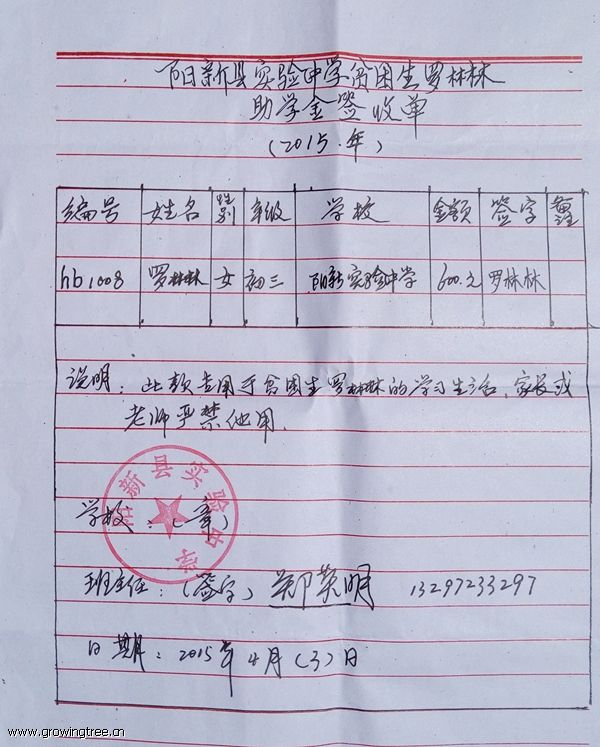 阳新县实验中学贫困生罗林林
助学金签收单
(2015.年)
编号 姓名 性别 年级 学校 金额 签字 备注
hb1008 罗林林 女 初三 阳新实验中学 600.元 罗林林
说明：此款专用于贫困生罗林林的学习生活、家长或
老师严禁他用.
阳新县实验中学
学校：(章)
班主任：(签字) 郑英明 13297233297
日期：2015年4月(3)日
www.growingtree.cn